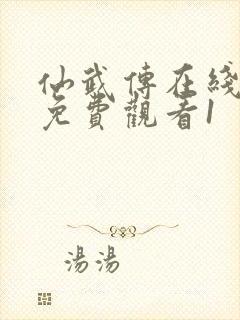 仙武傳在綫
免費觀看1
湯湯